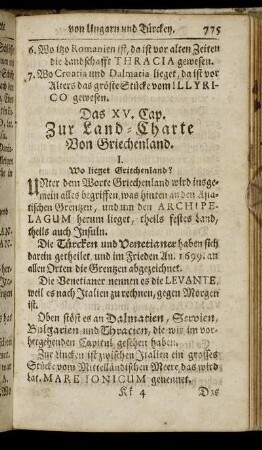 von Ungarn und Türckey. 775
6. Wo itzo Romanien ist, da ist vor alten Zeiten
die Landschafft THRACIA gewesen.
7. Wo Croatia und Dalmatia lieget, da ist vor
Alters das gröste Stücke vom ILLYRI-
CO gewesen.
Das XV. Cap.
Zur Land-Charte
Von Griechenland.
I.
Wo lieget Griechenland?
UNter dem Worte Griechenland wird insge-
mein alles begriffen, was hinten an den Asia-
tischen Grentzen, und um den ARCHIPE-
LAGUM herum lieget, theils festes Land,
theils auch Insuln.
Die Türcken und Venetianer haben sich
darein getheilet, und im Frieden An. 1699. an
allen Orten die Grentzen abgezeichnet.
Die Venetianer nennen es die LEVANTE,
weil es nach Italien zu rechnen, gegen Morgen
ist.
Oben stöst es an Dalmatien, Servien,
Bulgarien und Thracien, die wir im vor-
hergehenden Capitul gesehen haben.
Zur lincken ist zwischen Italien ein grosses
Stücke vom Mittelländischen Meere, das wird
das MARE IONICUM genennet.
Kk 4 Das